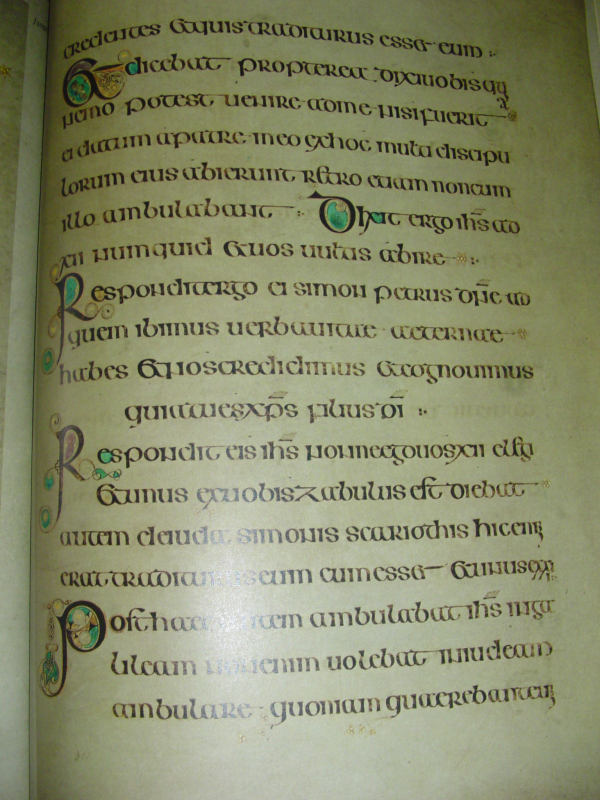 credentes & quis traditurus ess& eum
& dicebat propterea dixi uobis q
nemo potest uenire ad me nisi fuerit
ei datum a patre meo exhoc multi discipu
lorum eius abierunt r&ro etiam non cum
illo ambulabant Dixit ergo ihs ad
xii numquid & uos uultis abire
Respondit ergo ei simon petrus dne ad
quem ibimus uerba uitae aeternae
habes & nos credidimus & cognouimus
quia tu es xps filius di
Respondit eis ihs nonne ego uos xii elegi
& unus ex uobis zabulus est dicebat
autem simonis scariothis hic enim
erat traditurus eum cum ess& & unus ex
Post haec autem ambulabat ihs in ga
lileam non enim uolebat in iudeam
ambulare quoniam quaerebant eum